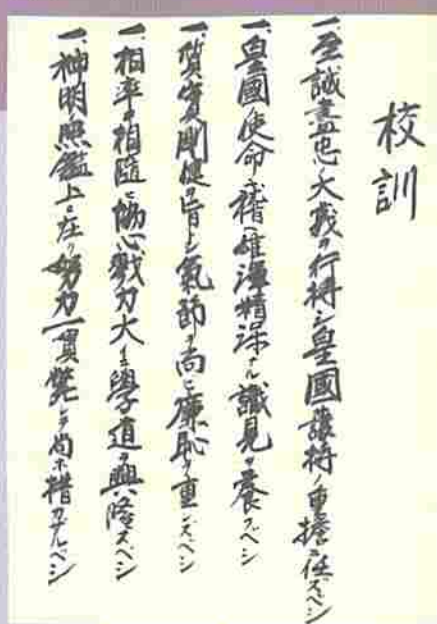 校訓
一、至誠盡忠ノ大義ヲ行持シ皇國護持ノ重擔ニ任ズベシ
一、皇國使命ニ稽ヘ雄渾精深ナル識見ヲ養フベシ
一、質實剛健ヲ旨トシ氣節ヲ尚ビ廉恥ヲ重ンズベシ
一、相率ヰ相隨ヒ協心戮力大ニ學道ヲ興隆スベシ
一、神明ノ照鑑上ニ在リ努力一貫斃レテ尚ホ措カザルベシ